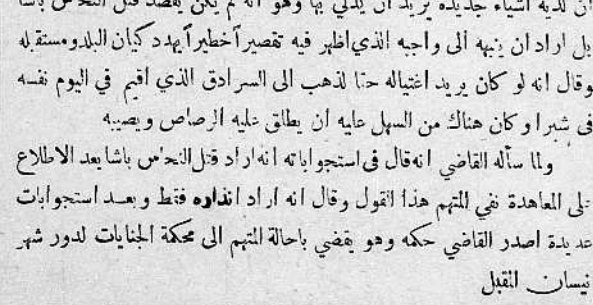 ان لديه اشياء جديدة يريد ان يدلي بها وهو انه لم يكن يقصد قتل النحاس باشا
بل اراد ان ينبهه الى واجبه الذي اظهر فيه تقصيراً خطيراً يهدد كيان البلد ومستقبله
وقال انه لو كان يريد اغتياله حقا لذهب الى السرادق الذي اقيم في اليوم نفسه
في شبرا وكان هناك من السهل عليه ان يطلق عليه الرصاص ويصيبه
ولما سأله القاضي انه قال في استجواباته انه اراد قتل النحاس باشا بعد الاطلاع
على المعاهدة نفي المتهم هذا القول وقال انه اراد انذاره فقط وبعد استجوابات
عديدة اصدر القاضي حكمه وهو يقضي باحالة المتهم الى محكمة الجنايات لدور شهر
نيسان المقبل